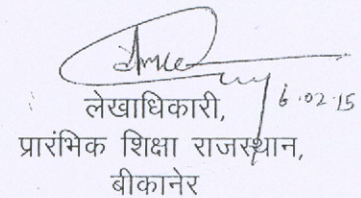 6.02.15
लेखाधिकारी,
प्रारंभिक शिक्षा राजस्थान,
बीकानेर